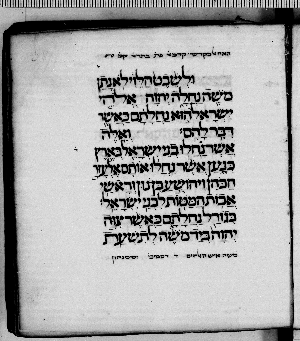 ולשבט הלוי לא נתן
משה נחלה יהוה אלהי
ישראל הוא נחלתם כאשר
דבר להם ואלה
אשר נחלו בני ישראל בארץ
כנען אשר נחלו אותם אלעזר
הכהן ויהושע בן נון וראשי
אבות המטות לבני ישראל
בגורל נחלתם כאשר צוה
יהוה ביד משה לתשעת